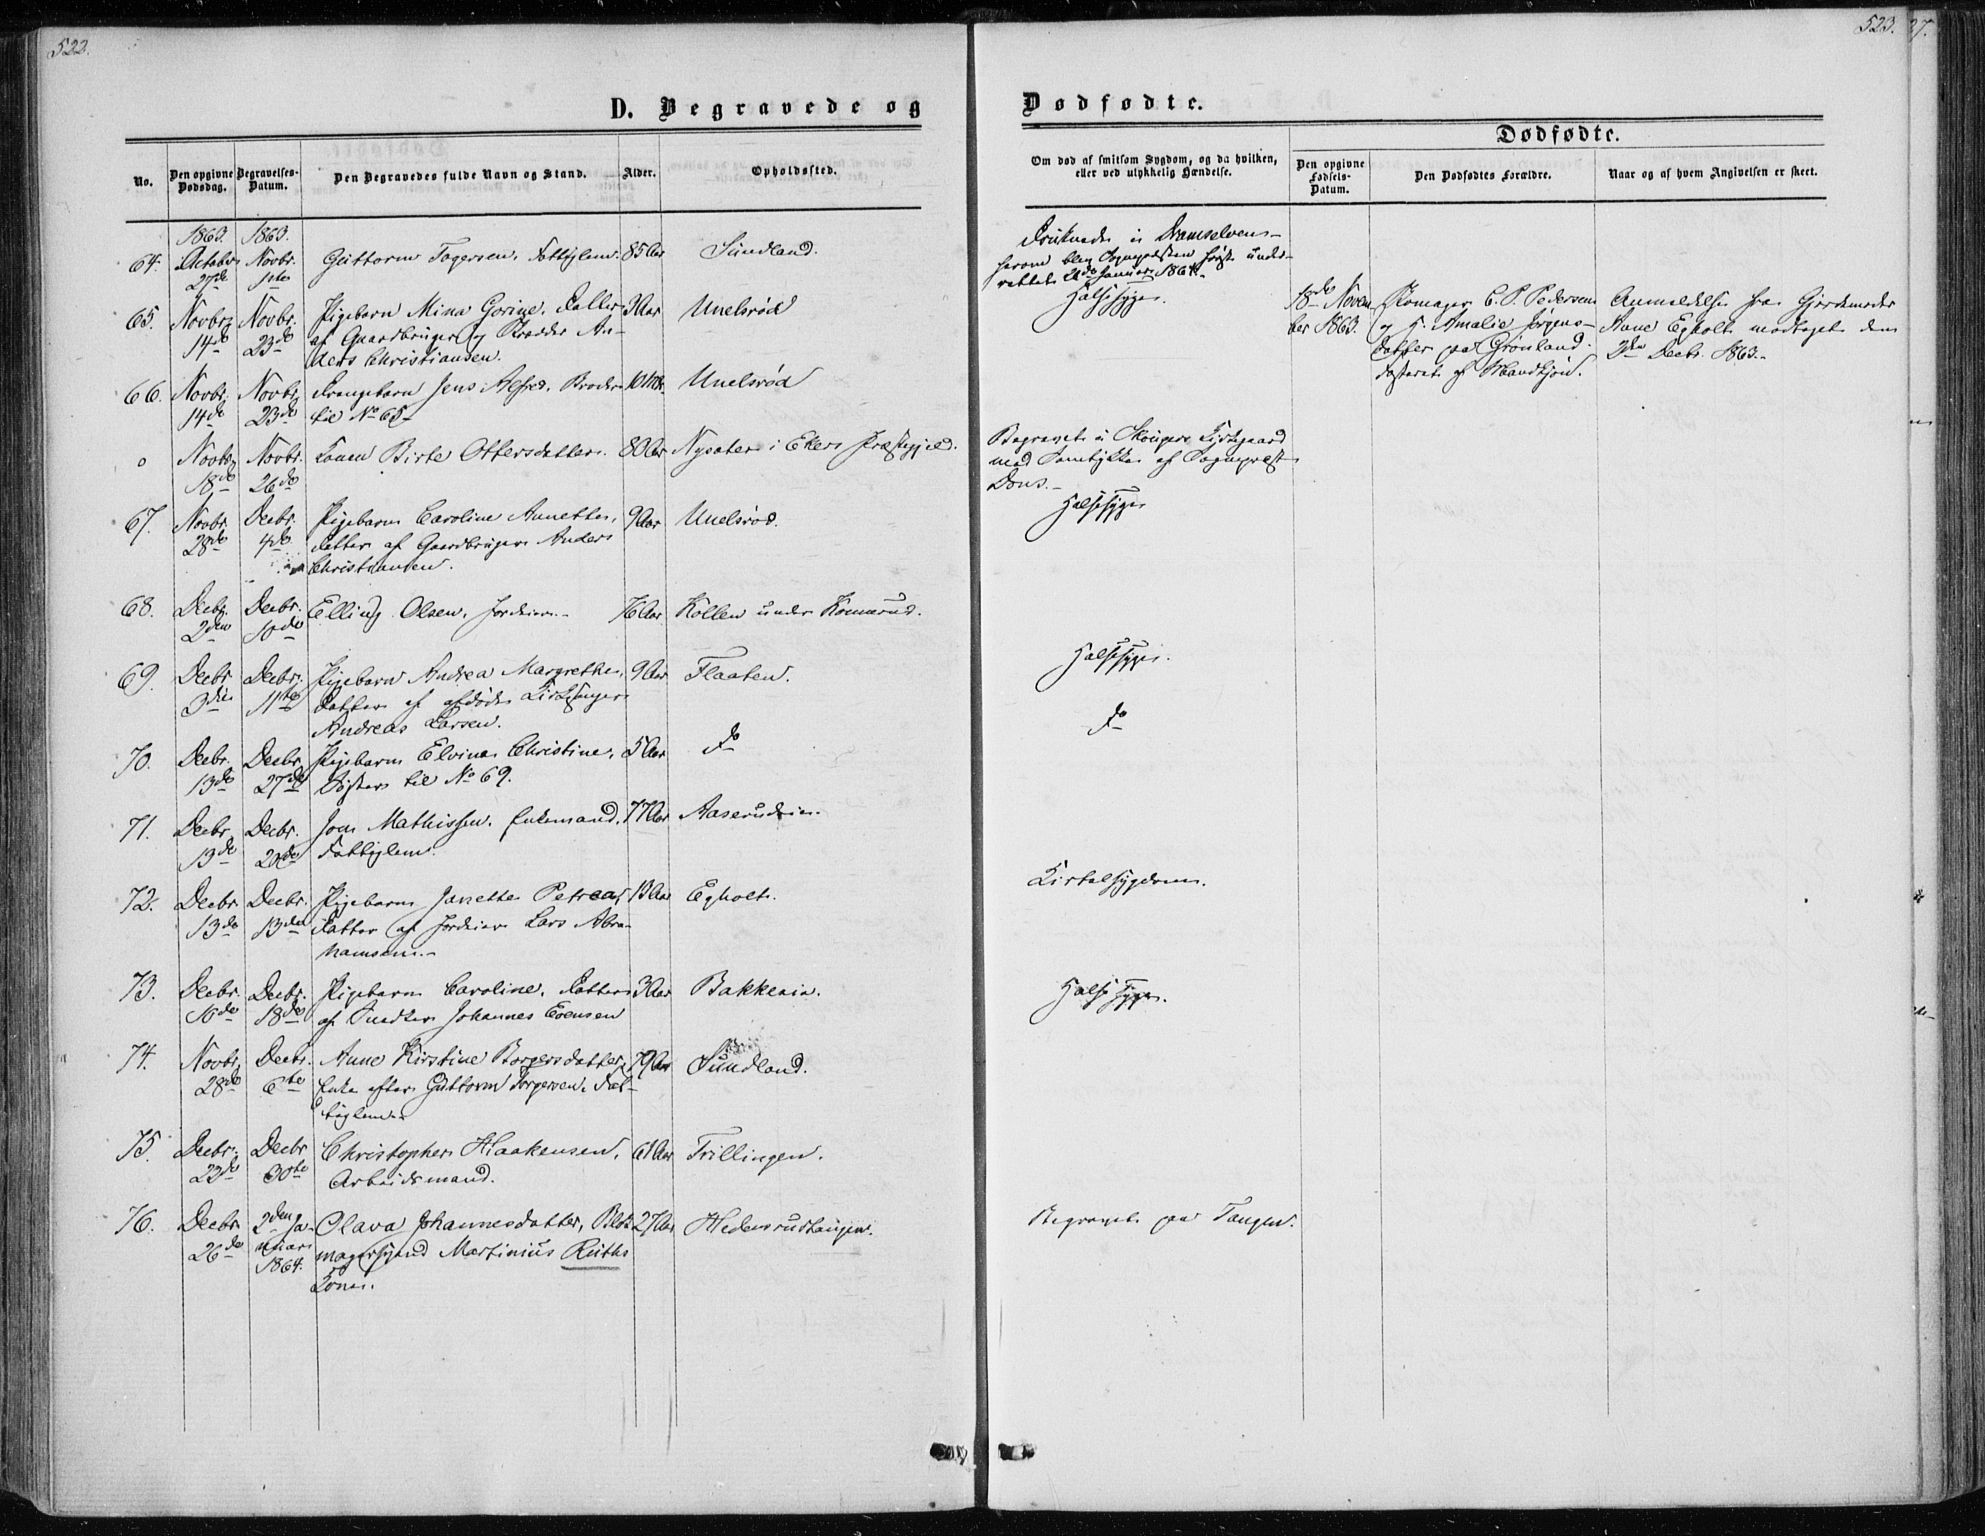 522.
D. Begravede og
No.
Den opgivne Dødsdag.
Begravelses-Datum.
Den Begravedes fulde Navn og Stand.
Alder.
Opholdssted.
1863. 1863.
64. October Novbr. Guttorm Togersen, Fattiglem. 85 Aar Sundland.
27de 1ste
65. Novbr. Novbr. Pigebarn Mina Gorine, Datter 3 Aar Unelsrød
14de 23de af Gaardbruger og Skrædder An-
ders Christiansen.
66. Novbr. Novbr. Drengebarn Jens Alfred, Broder 10 Mdr. Unelsrød
14de 23de til No 65.
o Novbr. Novbr. Konen Birte Ottersdatter. 80 Aar Nysæter i Ekers Præstegjeld.
18de 26de
67. Novbr. Decbr. Pigebarn Caroline Annette, 9 Aar Unelsrød.
28de 4de Datter af Gaardbruger Anders
Christiansen.
68. Decbr. Decbr. Elling Olsen, Jordeier. 76 Aar Kollen under Komnerud.
2den 10de
69. Decbr. Decbr. Pigebarn Andrea Margrethe, 9 Aar Flaaten.
3die 11te Datter af afdøde Kirkesanger
Andreas Larsen.
70. Decbr. Decbr. Pigebarn Elvina Christine, 5 Aar do
13de 27de Søster til No 69.
71. Decbr. Decbr. Jon Mathissen, Enkemand, 77 Aar Aaserudeie.
13de 20de Fattiglem.
72. Decbr. Decbr. Pigebarn Janette Petrea, 13 Aar Egholt.
13de 13de Datter af Jordeier Lars Abra-
hamsen.
73. Decbr. Decbr. Pigebarn Caroline, Datter 3 Aar Bakkeeie.
16de 18de af Snedker Johannes Evensen
74. Novbr. Decbr. Anne Kirstine Borgersdatter, 79 Aar Sundland.
28de 6te Enke efter Guttorm Torgersen, Fat-
tiglem.
75. Decbr. Decbr. Christopher Haakensen, 61 Aar Trillingen.
23de 30te Arbeidsmand.
76. Decbr. 2den Ja- Olava Johannesdatter, Blok- 27 Aar Hedensrudtangen.
26de nuar magersvend Martinius Ruths
1864. Kone.
523.
27.
Dødfødte.
Dødfødte.
Om død af smitsom Sygdom, og da hvilken,
eller ved ulykkelig Hændelse.
Den opgivne Fødsels-Datum.
Den Dødfødtes Forældre.
Naar og af hvem Angivelsen er skeet.
Druknede i Dramselven-
herom blev Sognepræsten først under-
rettet Januar 1864.
Halssyge.
18de Novem- Skomager C. P. Pedersen Anmeldelse fra Gjordemoder
ber 1863. og H. Amalie Jørgens- Hane Egholt modtaget den
datter paa Grønland. 2den Decbr. 1863.
Fosteret af Mandkjøn.
Begravet i Skougers Kirkegaard
med Samtykke af Sognepræst
Dons.
Halssyge
Halssyge.
do
Kirtelsygdom.
Halssyge.
Begravet paa Tangen.